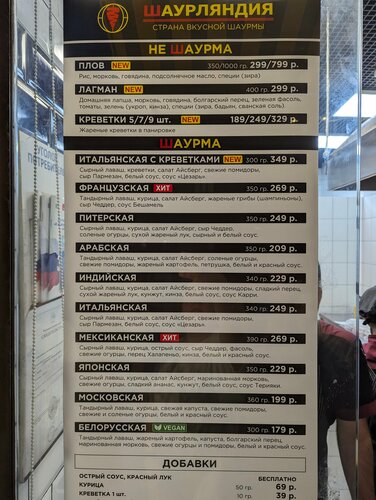 ШАУРЛЯНДИЯ
СТРАНА ВКУСНОЙ ШАУРМЫ
НЕ ШАУРМА
ПЛОВ NEW 350/1000 гр. 299/799 р.
Рис, морковь, говядина, подсолнечное масло, специи (зира)
ЛАГМАН NEW 400 гр. 299 р.
Домашняя лапша, морковь, говядина, болгарский перец, зеленая фасоль,
томаты, зелень (укроп, кинза), специи (зира, бадьян, сванская соль)
КРЕВЕТКИ 5/7/9 шт. NEW 189/249/329 р.
Жареные креветки в панировке
ШАУРМА
ИТАЛЬЯНСКАЯ С КРЕВЕТКАМИ NEW 300 гр. 349 р.
Сырный лаваш, креветки, салат Айсберг, свежие помидоры,
сыр Пармезан, белый соус, соус «Цезарь».
ФРАНЦУЗСКАЯ ХИТ 350 гр. 269 р.
Тандырный лаваш, курица, салат Айсберг, жареные грибы (шампиньоны),
сыр Чеддер, соус Бешамель
ПИТЕРСКАЯ 350 гр. 249 р.
Сырный лаваш, курица, салат Айсберг, сыр Чеддер,
соленые огурцы, сухой жареный лук, сырный и белый соус.
АРАБСКАЯ 350 гр. 209 р.
Тандырный лаваш, курица, салат Айсберг, соленые огурцы,
свежие помидоры, жареный картофель, петрушка, белый и красный соус.
ИНДИЙСКАЯ 350 гр. 229 р.
Сырный лаваш, курица, салат Айсберг, свежие помидоры, сладкий перец,
сухой жареный лук, кунжут, кинза, белый соус, соус Карри.
ИТАЛЬЯНСКАЯ 340 гр. 249 р.
Сырный лаваш, курица, салат Айсберг, свежие помидоры,
сыр Пармезан, белый соус, соус «Цезарь».
МЕКСИКАНСКАЯ ХИТ 390 гр. 269 р.
Сырный лаваш, курица, острый соус, сыр Чеддер, фасоль,
свежие огурцы, перец Халапеньо, кинза, белый и красный соус.
ЯПОНСКАЯ 350 гр. 229 р.
Сырный лаваш, курица, салат Айсберг, маринованная морковь,
свежие огурцы, сладкий ананас, кунжут, белый соус, соус Терияки.
МОСКОВСКАЯ 360 гр. 199 р.
Тандырный лаваш, курица, свежая капуста, свежие помидоры,
свежие и соленые огурцы, белый и красный соус.
БЕЛОРУССКАЯ VEGAN 300 гр. 179 р.
Тандырный лаваш, жареный картофель, капуста, болгарский перец,
маринованная морковь, свежие огурцы и помидоры, белый и красный соус
ДОБАВКИ
ОСТРЫЙ СОУС, КРАСНЫЙ ЛУК БЕСПЛАТНО
КУРИЦА 50 гр. 69 р.
КРЕВЕТКА 1 шт. 10 гр. 39 р.